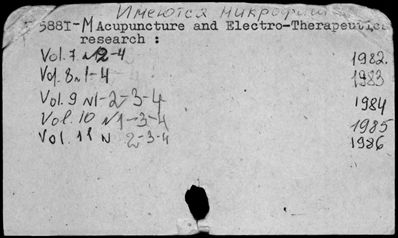 Имеются микрофиши
5881-M Acupuncture and Electro-Therapeutics
research :
Vol. 7 N2-4 1982.
Vol. 8 N1-4 1983
Vol. 9 N1-2-3-4 1984
Vol. 10 N1-3-4 1985
Vol. 11 N 2-3-4 1986